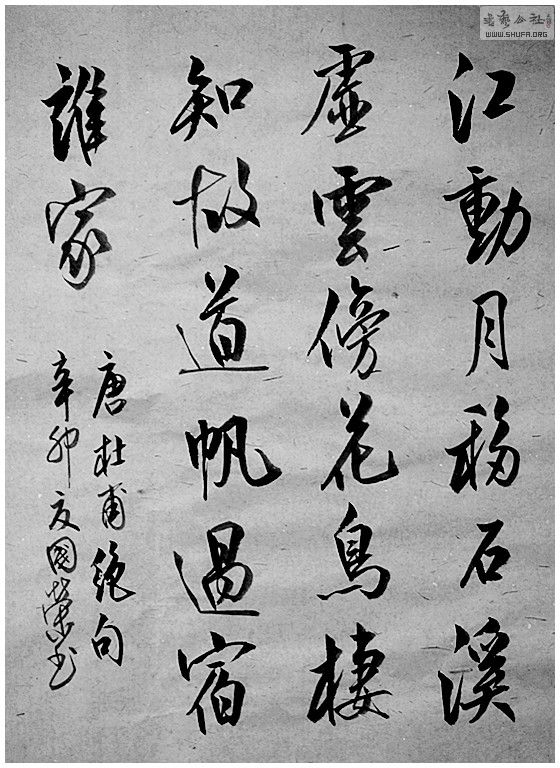 江動月移石溪
虛雲傍花鳥棲
知故道帆過宿
誰家
唐杜甫絕句
辛卯國榮书
公社
WWW.SHUFA.ORG